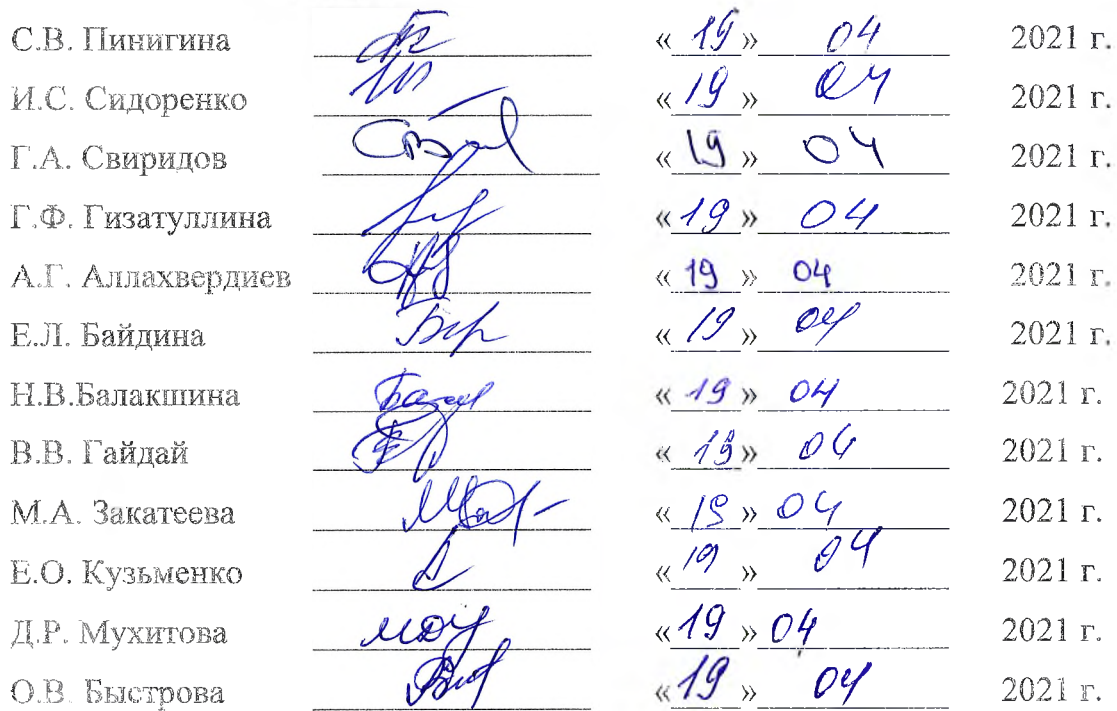 С.В. Пинигина « 19 » 04 2021 г.
И.С. Сидоренко « 19 » 04 2021 г.
Г.А. Свиридов « 19 » 04 2021 г.
Г.Ф. Гизатуллина « 19 » 04 2021 г.
А.Г. Аллахвердиев « 19 » 04 2021 г.
Е.Л. Байдина « 19 » 04 2021 г.
Н.В.Балакшина « 19 » 04 2021 г.
В.В. Гайдай « 19 » 04 2021 г.
М.А. Закатеева « 19 » 04 2021 г.
Е.О. Кузьменко « 19 » 04 2021 г.
Д.Р. Мухитова « 19 » 04 2021 г.
О.В. Быстрова « 19 » 04 2021 г.